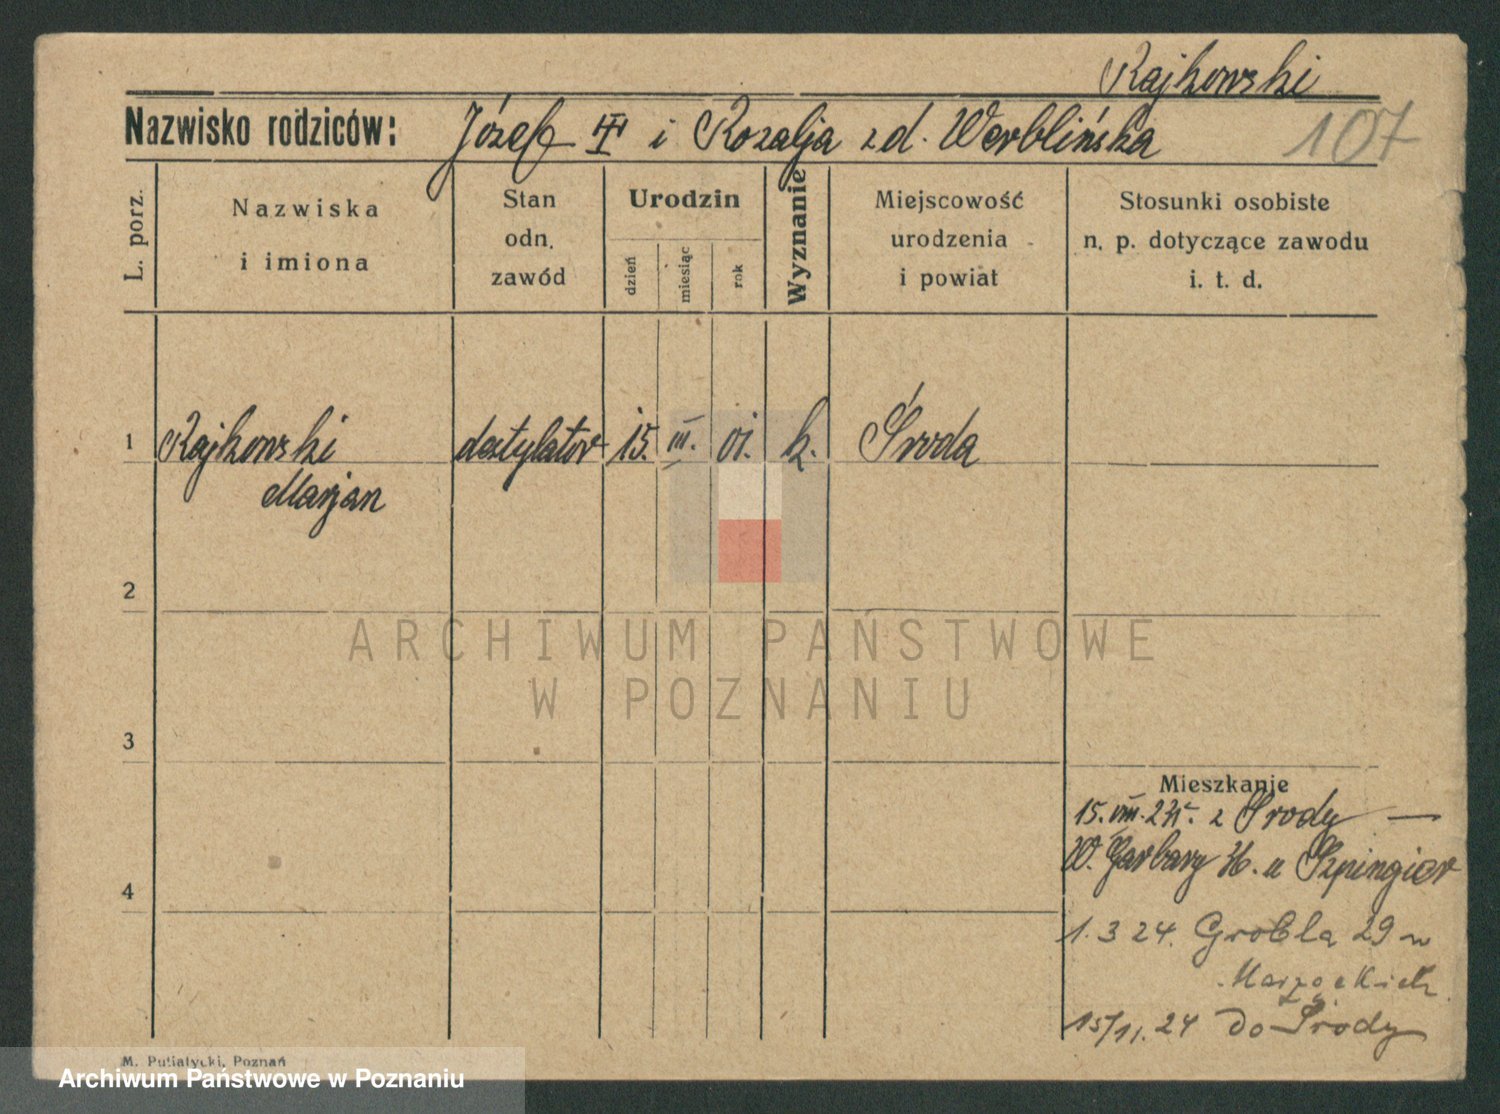 Rajkowski
Nazwisko rodziców: Józef i Rozalja zd. Werblińska
107
L. porz.
Nazwiska
i imiona
Stan
odn.
zawód
Urodzin
dzień
miesiąc
rok
Wyznanie
Miejscowość
urodzenia
i powiat
Stosunki osobiste
n. p. dotyczące zawodu
i. t. d.
1 Rajkowski destylator 15. III. 01. k. Środa
Marjan
2
ARCHIWUM PAŃSTWOWE
W POZNANIU
3
Mieszkanie
15. VIII. z Środy —
W. Garbary u Szpingier
4
1. 3 24. Grobla 29
15/11. 24 do Środy
M. Putiatycki, Poznań
Archiwum Państwowe w Poznaniu